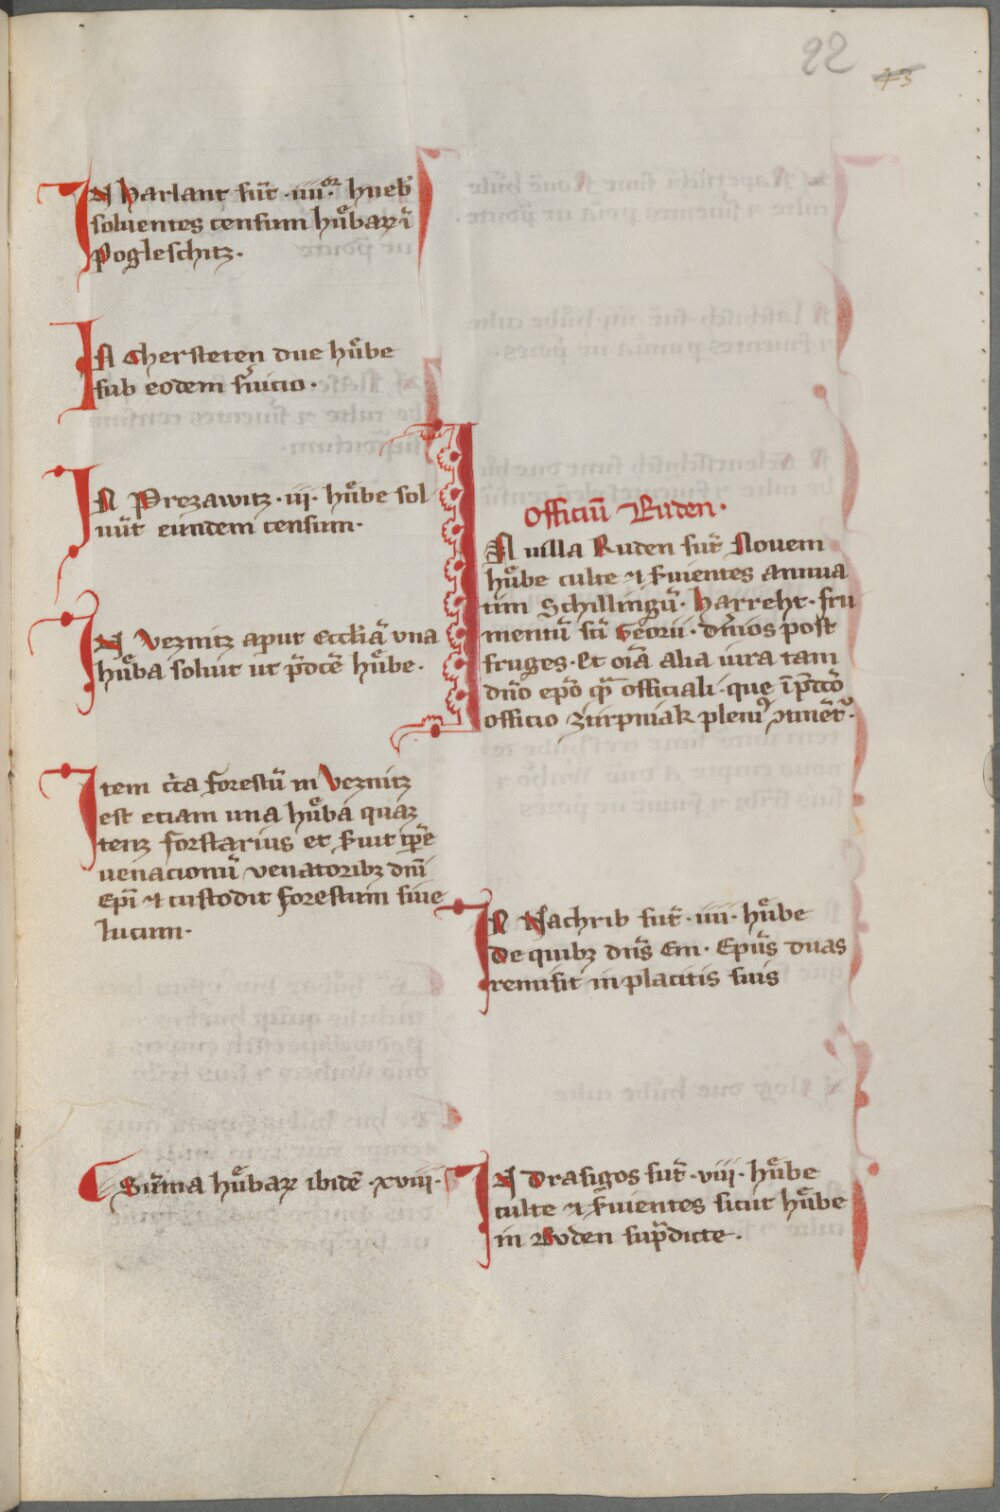 22
43
IN Harlant su̅t ·iiii·or hueb̅
soluentes censum hůbar̲ i̅
Pogleschitz·
IN Chersteten due hůbe
sub eodem s̅uicio·
IN Prezawitz ·iii· hůbe sol
uu̅t eundem censum·
IN Veznitz aput Eccli̅a̅ vna
hůba soluit ut p̅dc̅e̅ hůbe·
Item cir̅ca forestu̅ in Veznitz
est etiam una hůba quaz
tenz forstarius et s̅uit tp̅r̅e
uenacionu̅ venatoribz dn̅i
Ep̅i ⁊ custodit forestum siue
lucum·
Su̅ma hůbar̲ ibide̅ ·xviii·
Officiu̅ Ruden·
IN uilla Ruden su̅t Nouem
hůbe culte ⁊ s̅uientes annua
tim Schillingu̅· Harreht· fru
mentu̅ sc̅i Georii· dn̅ios post
fruges· Et oi̅a̅ alia iura tam
dn̅o ep̅o q̅m officiali· que i̅ p̅dc̅o
officio Zirpniak pleni9 ꝯtine̅t2·
IN Nachrib su̅t ·iiii· hůbe
de quibz dn̅s Em· Ep̅us duas
remisit in placitis suis
IN Drasigos su̅t ·viii· hůbe
culte ⁊ s̅uientes sicut hůbe
in Rvden sup̅dicte·